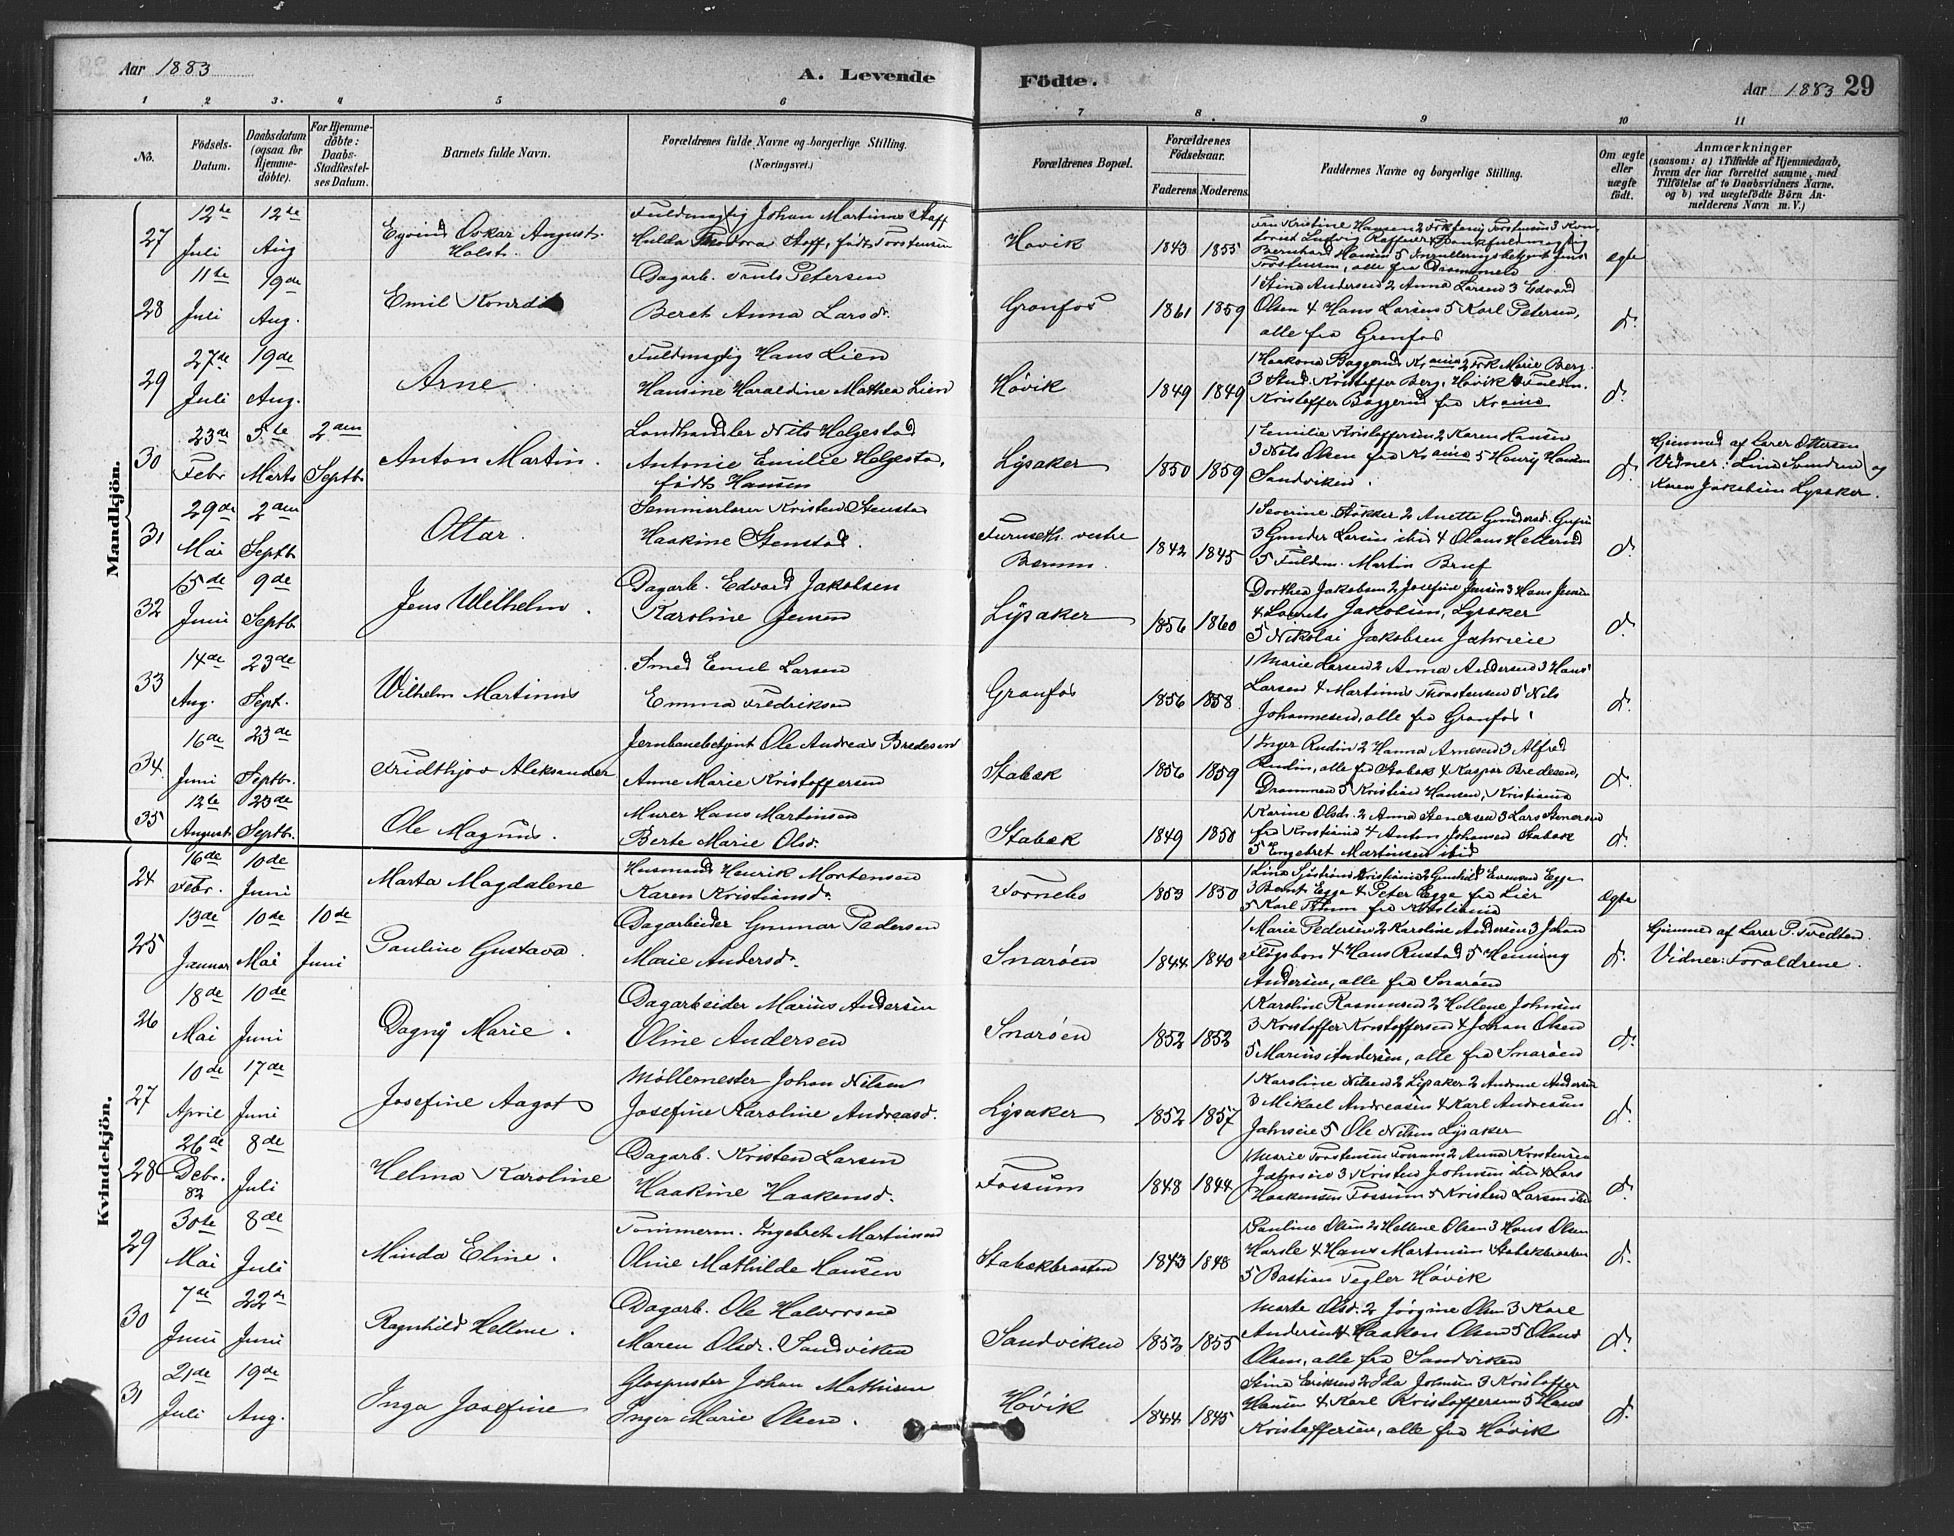 Aar 1883
A. Levende Födte.
Aar 1883 29
1 2 3. 4 5 6 7 8 9 10 11
No.
Födsels-Datum.
Daabsdatum (ogsaa for Hjemme-döbte).
For Hjemme-döbte: Daabs-Stadfæstel-ses Datum.
Barnets fulde Navn.
Forældrenes fulde Navne og borgerlige Stilling. (Næringsvei.)
Forældrenes Bopæl.
Forældrenes Födselsaar.
Faderens. Moderens.
Faddernes Navne og borgerlige Stilling.
Om ægte eller uægte födt.
Anmærkninger
(saasom: a) i Tilfælde af Hjemmedaab,
hvem der har forrettet samme, med
Tilföielse af to Daabsvidners Navne.
og b) ved uægtefödte Börn An-
melderens Navn m. V.)
Mandkjön.
27 12te Juli 12te Aug Eyvind Oskar August Holst. Fuldmægtig Johan Martinus Staff
Hulda Theodora Staff, født Torstensen Høvik 1843 1855 Fru Kristine Hansen 2 Frk Jenny Torstensen 3
Torstensen, alle fra Drammen ægte
28 11te Juli 19de Aug. Emil Dagarb. Truls Petersen
Beret Anna Larsd. Granfos 1861 1859 1 Stina Andersen 2 Anna Larsen 3 Edvard
Olsen 4 Hans Larsen 5 Karl Petersen,
alle fra Granfos d.
29 27de Juli 19de Aug. Arne Fuldmægtig Hans Lien
Hansine Haraldine Mathea Lien Høvik 1849 1849 2 Frk Marie Berg
3 Stud. Kristoffer Berg, Høvik 4 Fuldm.
Kristoffer Baggerud fra Krania d.
30 23de Febr 5te Marts 2den Septb. Anton Martin. Landhandler Nils Helgestad
Antonie Emilie Helgestad,
født Hansen Lysaker 1850 1859 1 Emilie Kristoffersen 2 Karen Hansen
3 Nils Olsen fra Krania 5 Henry Hansen
Sandviken. d. Hjemmed af Lærer Ottersen
Vidner: Lina og
Karen Jakobsen Lysaker.
31 29de Mai 2den Septb Ottar. Seminarlærer Kristen Stenstad
Haakine Stenstad. Furuseth. vestre
Bærum. 1842 1845 1 Severine Støkker 2 Anette Gundersd.
3 Gunder Larsen ibid 4 Olaus Hellerud
5 Fuldm. Martin d.
32 15de Juni 9de Septb. Jens Wilhelm. Dagarb. Edvard Jakobsen
Karoline Jensen Lysaker 1856 1860 Dorthea Jakobsen 2 Josefine Jensen 3 Hans Jensen
4 Laurits Jakobsen, Lysaker
5 Nikolai Jakobsen d.
33 14de Aug. 23de Sept. Wilhelm Martinus Smed Emil Larsen
Emma Fredriksen Granfos 1856 1858. 1 Marie Larsen 2 Anna Andersen 3 Hans
Larsen 4 Martinus Thorstensen 5 Nils
Johannesen, alle fra Granfos. d.
34. 16de Juni 23de Septb. Fridthjov Aleksander Jernbanebetjent Ole Andreas Bredesen
Anne Marie Kristoffersen Stabæk 1856 1859 1 Inger Rudin 2 Hanna Arnesen 3 Alfred
Rudin, alle fra Stabæk 4 Kaspar Bredesen,
Drammen 5 Kristian Hansen, Kristiania d.
35 12te August 23de Septb. Ole Magnus. Murer Hans Martinsen
Berte Marie Olsd. Stabæk 1849 1850 1 Karine Olsdr. 2 Anna Stenersen 3 Lars Stenersen
fra Kristiania 4 Anton Johansen Stabæk
5 Engebret Martinsen ibid d.
Kvindekjön.
24 16de Febr. 10de Juni Marta Magdalene Husmand Henrik Mortensen
Karen Kristiansd. Fornebo 1853 1850 1 Lina Kristiania 2 Egge
3 Bernt Egge 4 Peter Egge fra Lier
5 Karl fra Kristiania ægte
25 13de Januar 10de Mai 10de Juni Pauline Gustava. Dagarbeider Gunnar Pedersen
Marie Andersd. Snarøen 1844 1840 1 Marie Pedersen 2 Karoline Andersen 3 Johan
4 Hans Rustad 5 Henning
Andersen, alle fra Snarøen d. Hjemmed af Lærer P. Tvedten
Vidner: Forældrene.
26 18de Mai 10de Juni Dagny Marie. Dagarbeider Marius Andersen
Oline Andersen Snarøen 1852 1852 1 Karoline Rasmussen 2 Hellene Johnsen
3 Kristoffer Kristoffersen 4 Johan Olsen
5 Marius Andersen, alle fra Snarøen d.
27 10de April 17de Juni Josefine Aagot Møllemester Johan Nilsen
Josefine Karoline Andreasd. Lysaker 1852 1857 1 Karoline Nilsen 2 Lysaker 2 Andersen
3 Mikael Andreasen 4 Karl Andreasen
5 Ole Nilsen Lysaker d.
28 26de Debr. 82 8de Juli Helma Karoline Dagarb. Kristen Larsen
Haakine Haakensd. Fossum 1848 1844 1 Marie Torstensen Fossum 2 Anna Kristensen
3 Kristen Johnsen ibid 4 Lars
Haakensen Fossum 5 Kristen Larsen ibid d.
29 30te Mai 8de Juli Minda Eline. Tømmerm. Ingebret Martinsen
Oline Mathilde Hansen Stabækbraaten 1843 1848 1 Pauline Olsen 2 Hellene Olsen 3 Hans Olsen
Harsle 4 Hans Martinsen Stabækbraaten
5 Bastian Tegler Høvik d.
30 7de Juni 22de Juni Ragnhild Hellene. Dagarb. Ole Halvorsen
Maren Olsdr. Sandviken Sandviken 1852 1855 Marte Olsd. 2 Jørgine Olsen 3 Karl
Andersen 4 Haakon Olsen 5
Olsen, alle fra Sandviken d.
31 21de Juli 19de Aug. Inga Josefine Glaspuster Johan Mathisen
Inger Marie Olsen. Høvik 1844 1845 Stina Eriksen 2 Ida Johnsen 3 Kristoffer
Hansen 4 Karl Kristoffersen 5 Hans
Kristoffersen, alle fra Høvik d.